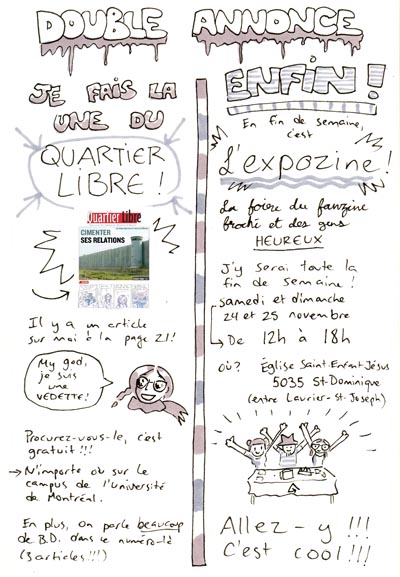 DOUBLE ANNONCE
JE FAIS LA
UNE DU
QUARTIER
LIBRE !
quartier libre
CIMENTER
SES RELATIONS
Il y a un article
sur moi à la page 21!
My god,
je suis
une
VEDETTE!
Procurez-vous-le, c'est
gratuit !!!
→ N'importe où sur le
campus de l'Université
de Montréal.
En plus, on parle beaucoup
de B.D. dans ce numéro-là
(3 articles !!!)
ENFIN !
En fin de semaine,
c'est
L'expozine !
La foire du fanzine
broché et des gens
HEUREUX
J'y serai toute la
fin de semaine !
samedi et dimanche
24 et 25 novembre
→ De 12h à 18h
où? Église Saint-Enfant Jésus
5035 St-Dominique
(entre Laurier - St-Joseph)
Allez-y !!!
C'est cool !!!